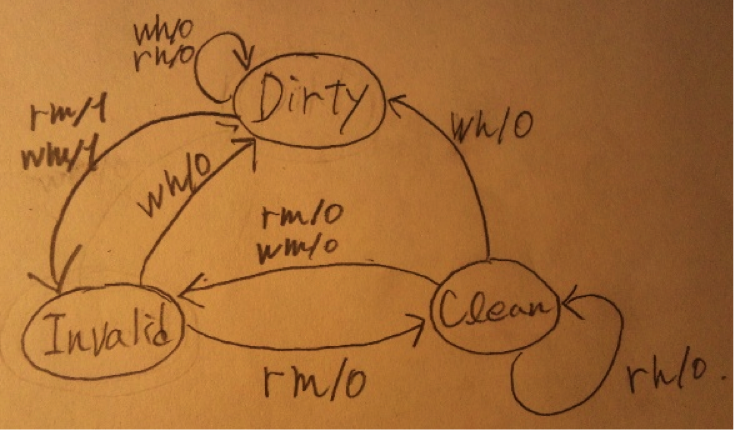 wh/0
rh/0
Dirty
rm/1
wm/1
wh/0
wh/0
rm/0
wm/0
Invalid
Clean
rm/0
rh/0.